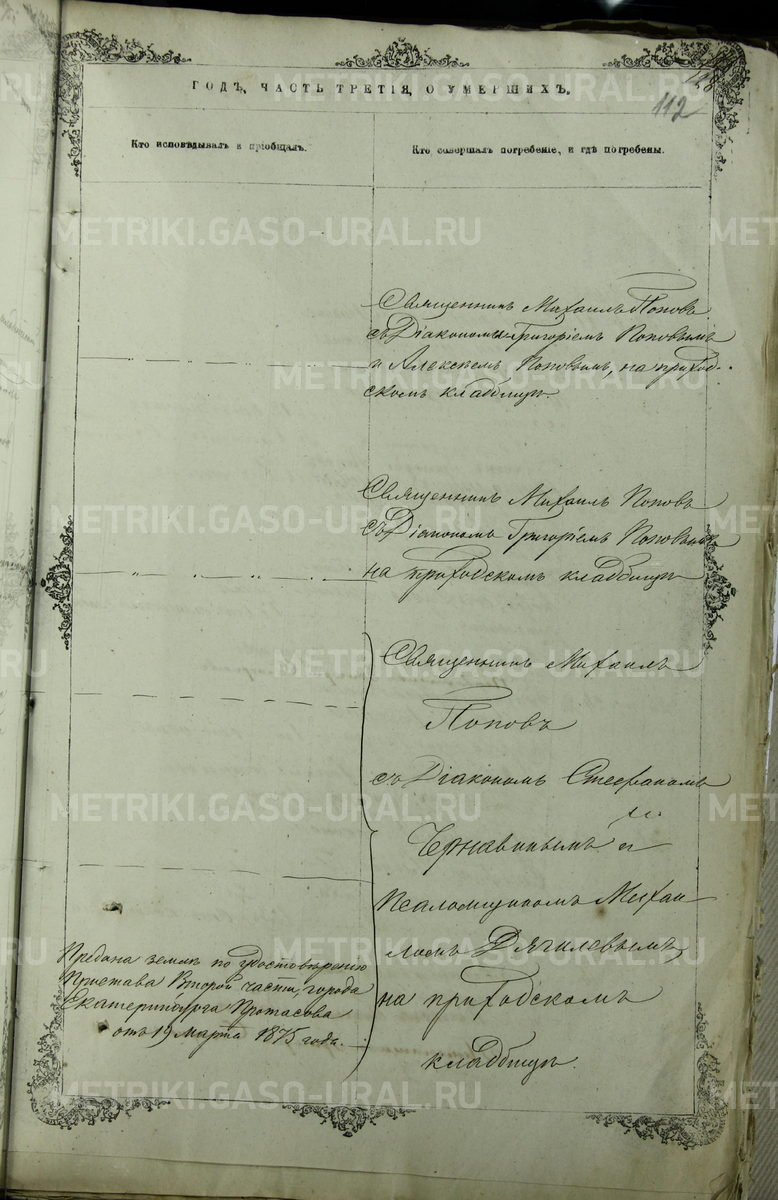 112
ГОДЪ, ЧАСТЬ ТРЕТІЯ, О УМЕРШИХЪ.
Кто исповѣдывалъ и пріобщалъ.
Кто совершалъ погребеніе, и гдѣ погребены.
Священникъ Михаилъ Поповъ
съ Діакономъ Григоріемъ Поповымъ
и Алексѣемъ Поповымъ, на приход-
скомъ кладбищѣ.
Священникъ Михаилъ Поповъ
съ Діакономъ Григоріемъ Поповымъ
на приходскомъ кладбищѣ
Священникъ Михаилъ
Поповъ
съ Діакономъ Стефаномъ
Чернавинымъ и
Псаломщикомъ Михаи-
ломъ Дягилевымъ,
на приходскомъ
кладбищѣ.
Предана землѣ по удостовѣренію
Пристава Второй части, города
Екатеринбурга Протасова
отъ 19 марта 1875 года.
METRIKI.GASO-URAL.RU